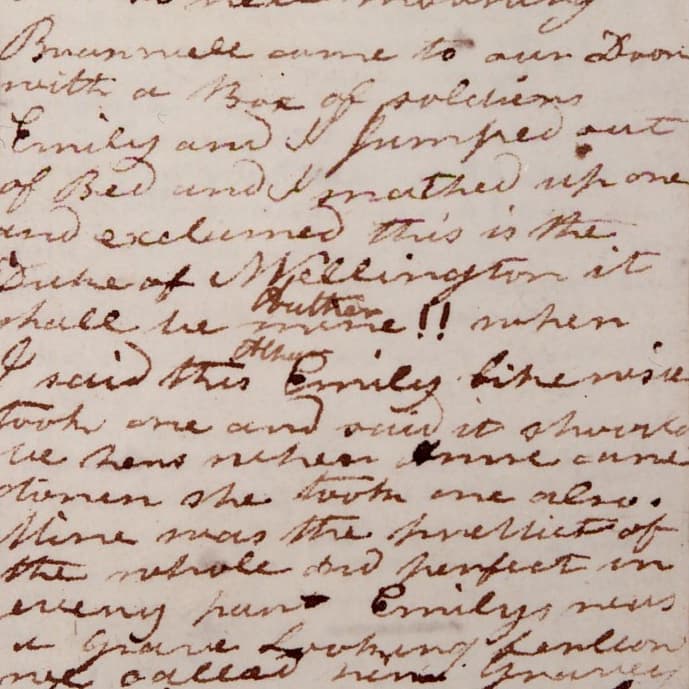 next morning
Branwell came to our Door
with a Box of soldiers
Emily and I jumped out
of Bed and I snathed up one
and exclaimed this is the
Duke of Wellington it
shall be mine!! when
I said this Emily likewise
took one and said it should
be hers when Anne came
down she took one also.
Mine was the prettiest of
the whole and perfect in
every part Emilys was
a Grave Looking fellow
we called him Gravey